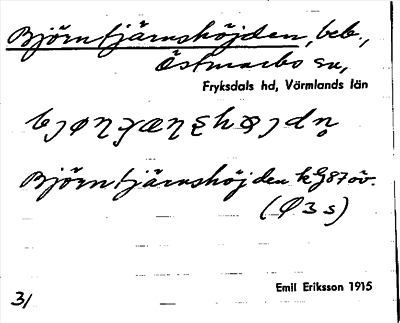 Björntjärnshöjden, beb.,
Östmarks sn,
Fryksdals hd, Värmlands län
Björntjärnshöjden k G87 öv.
(Ø 3 s)
Emil Eriksson 1915
31